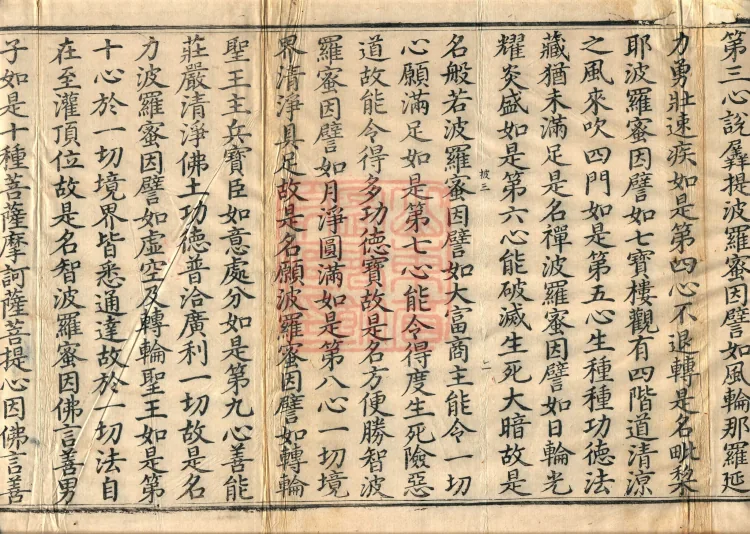 第三心說羼提波羅蜜因譬如風輪那羅延
力勇壯速疾如是第四心不退轉是名毗棃
耶波羅蜜因譬如七寶樓觀有四階道清涼
之風來吹四門如是第五心生種種功德法
藏猶未滿足是名禪波羅蜜因譬如日輪光
耀炎盛如是第六心能破滅生死大暗故是
披三 二
名般若波羅蜜因譬如大富商主能令一切
心願滿足如是第七心能令得度生死險惡
道故能令得多功德寶故是名方便勝智波
羅蜜因譬如月淨圓滿如是第八心一切境
界清淨具足故是名願波羅蜜因譬如轉輪
聖王主兵寶臣如意處分如是第九心善能
莊嚴清淨佛土功德普洽廣利一切故是名
力波羅蜜因譬如虛空及轉輪聖王如是第
十心於一切境界皆悉通達故於一切法自
在至灌頂位故是名智波羅蜜因佛言善男
子如是十種菩薩摩訶薩菩提心因佛言善